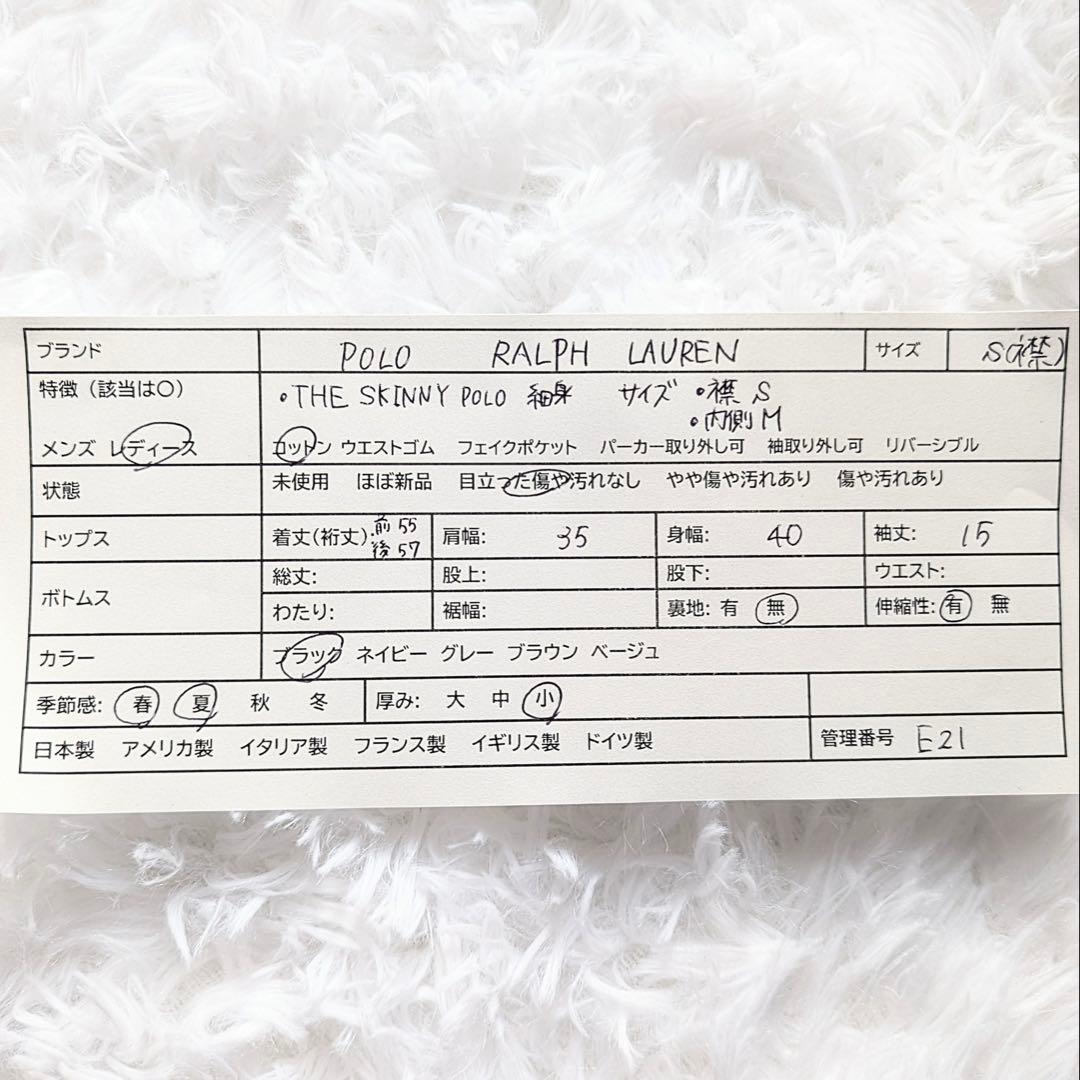 ブランド POLO RALPH LAUREN サイズ S(襟)
特徴（該当は〇） ・THE SKINNY POLO 細身 サイズ ・襟 S
・内側 M
メンズ レディース コットン ウエストゴム フェイクポケット パーカー取り外し可 袖取り外し可 リバーシブル
状態 未使用 ほぼ新品 目立った傷や汚れなし やや傷や汚れあり 傷や汚れあり
トップス 着丈(裄丈): 前 55 後 57 肩幅: 35 身幅: 40 袖丈: 15
ボトムス 総丈: 股上: 股下: ウエスト:
わたり: 裾幅: 裏地: 有 無 伸縮性: 有 無
カラー ブラック ネイビー グレー ブラウン ベージュ
季節感: 春 夏 秋 冬 厚み: 大 中 小
日本製 アメリカ製 イタリア製 フランス製 イギリス製 ドイツ製 管理番号 E21